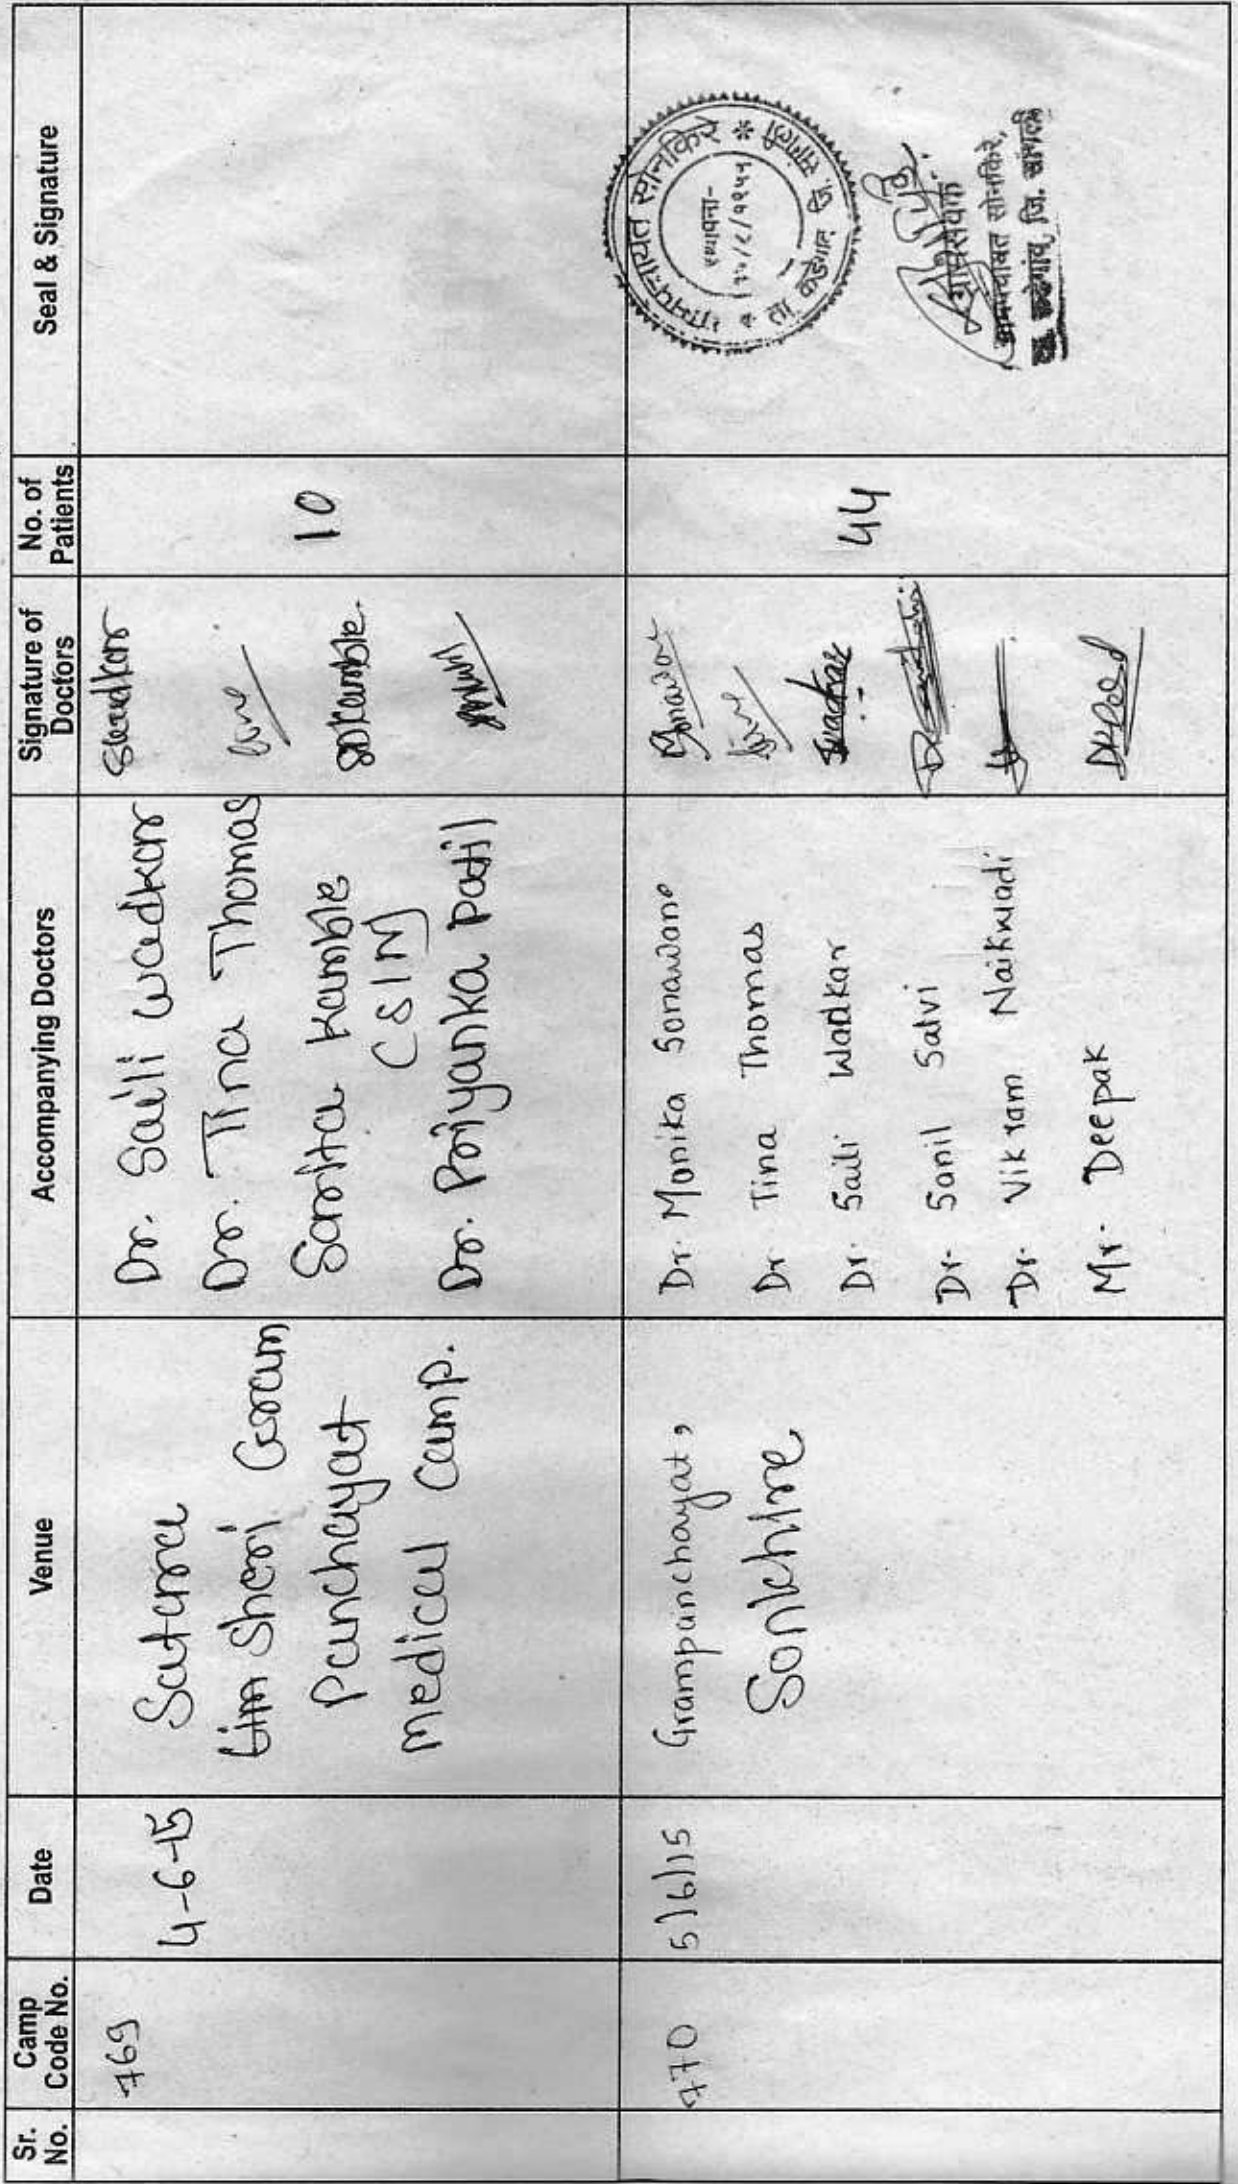 Sr. No.
Camp Code No.
Date
Venue
Accompanying Doctors
Signature of Doctors
No. of Patients
Seal & Signature
769
4-6-15
Satara
Lim Sheri Gram
Panchayat
Medical Camp.
Dr. Saili Wadkar
Dr. Tina Thomas
Sarita Kamble
(SIM)
Dr. Priyanka Patil
Swadkar
SDKamble.
10
770
5/6/15
Grampanchayat,
Sonkhire
Dr. Monika Sonawane
Dr Tina Thomas
Dr. Saili Wadkar
Dr. Sanil Salvi
Dr. Vikram Naikwadi
Mr. Deepak
44
ग्रामपंचायत सोनकिरे
स्थापना-
ता. कडेगांव जि. सांगली
ग्रामसेवक
ग्रामपंचायत सोनकिरे,
ता. कडेगांव, जि. सांगली